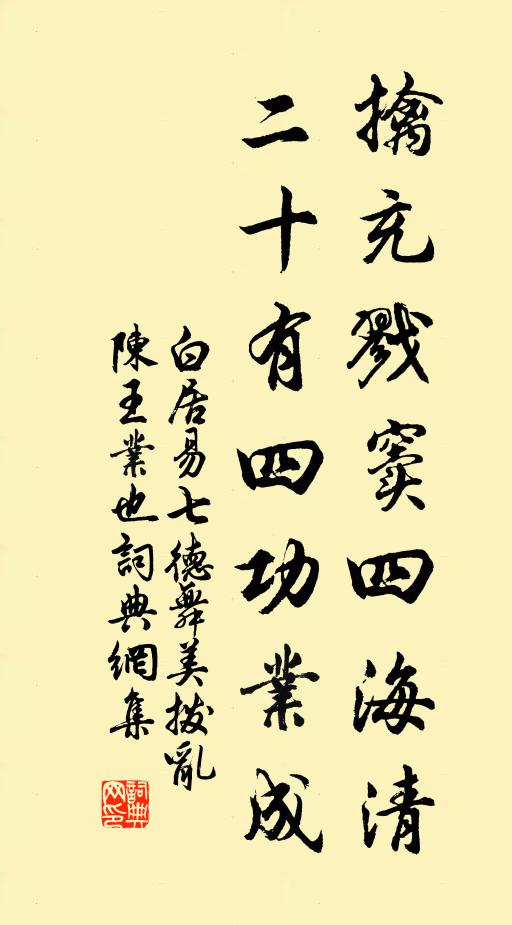 擒充戮竇四海清
二十有四功業成
白居易七德舞美撥亂
陳王業也詞典網集
詞典
网印